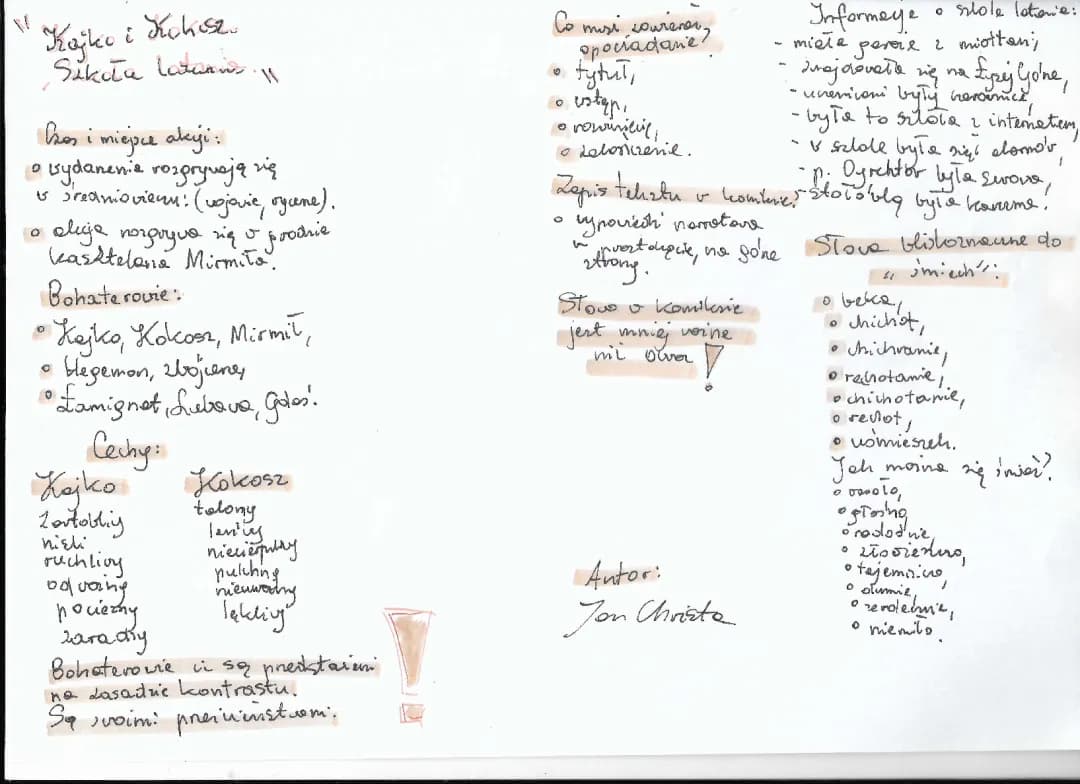 "Kajko i Kokosz.
Szkoła latania."
Czas i miejsce akcji:
wydarzenia rozgrywają się
w średniowieczu: (wojowie, rycerze).
akcja rozgrywa się w grodzie
kasztelana Mirmiła.
Bohaterowie:
Kajko, Kokosz, Mirmił,
Hegemon, zbójcerze,
Łamignat, Lubawa, Gdoś.
Cechy:
Kajko
żartobliwy
niski
ruchliwy
odważny
pocieszny
zaradny
Kokosz
leniwy
niecierpliwy
pulchny
nieuważny
lękliwy
Bohaterowie ci są przedstawieni
na zasadzie kontrastu.
Są swoimi przeciwieństwami.
!
Co musi zawierać
opowiadanie?
tytuł,
wstęp,
rozwinięcie,
zakończenie.
Zapis tekstu w komiksie?
wypowiedzi narratora
w prostokącie, na górze
strony.
Słowo w komiksie
jest mniej ważne
niż obraz !
Autor:
Jan Christa
Informacje o szkole latania:
- miała parcie z miotłami,
- znajdowała się na Łysej Górze,
- uczennicami były czarownice,
- była to szkoła z internatem,
- w szkole było sześć
- p. Dyrektor była surowa,
- stołówką była karczma.
Słowa bliskoznaczne do
"śmiech":
beka,
chichot,
chichranie,
rechotanie,
chichotanie,
rechot,
uśmieszek.
Jak można się śmiać?
wesoło,
głośno,
radośnie,
złowieszczo,
tajemniczo,
dumnie,
serdecznie,
niemiło.